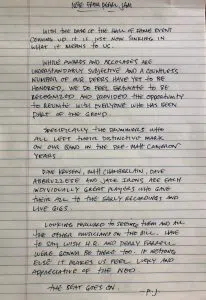 NOTE FROM PEARL JAM
WITH THE DATE OF THE HALL OF FAME EVENT
COMING UP IT IS JUST NOW SINKING IN
WHAT IT MEANS TO US.
WHILE AWARDS AND ACCOLADES ARE
UNDERSTANDABLY SUBJECTIVE AND A COUNTLESS
NUMBER OF OUR PEERS HAVE YET TO BE
HONORED, WE DO FEEL FORTUNATE TO BE
RECOGNIZED AND PROVIDED THE OPPORTUNITY
TO REUNITE WITH EVERYONE WHO HAS BEEN
PART OF THE GROUP.
SPECIFICALLY THE DRUMMERS WHO
ALL LEFT THEIR DISTINCTIVE MARK
ON OUR BAND IN THE PRE-MATT CAMERON
YEARS
DAVE KRUSEN, MATT CHAMBERLAIN, DAVE
ABBRUZZESE AND JACK IRONS ARE EACH
INDIVIDUALLY GREAT PLAYERS WHO GAVE
THEIR ALL TO THE EARLY RECORDINGS AND
LIVE GIGS.
LOOKING FORWARD TO SEEING THEM AND ALL
THE OTHER MUSICIANS ON THE BILL. HAVE
TO SAY WISH N.R. AND PERRY FARRELL
WERE GONNA BE THERE TOO. IF NOTHING
ELSE IT MAKES US FEEL LUCKY AND
APPRECIATIVE OF THE NOD.
THE BEAT GOES ON..
-P.J.